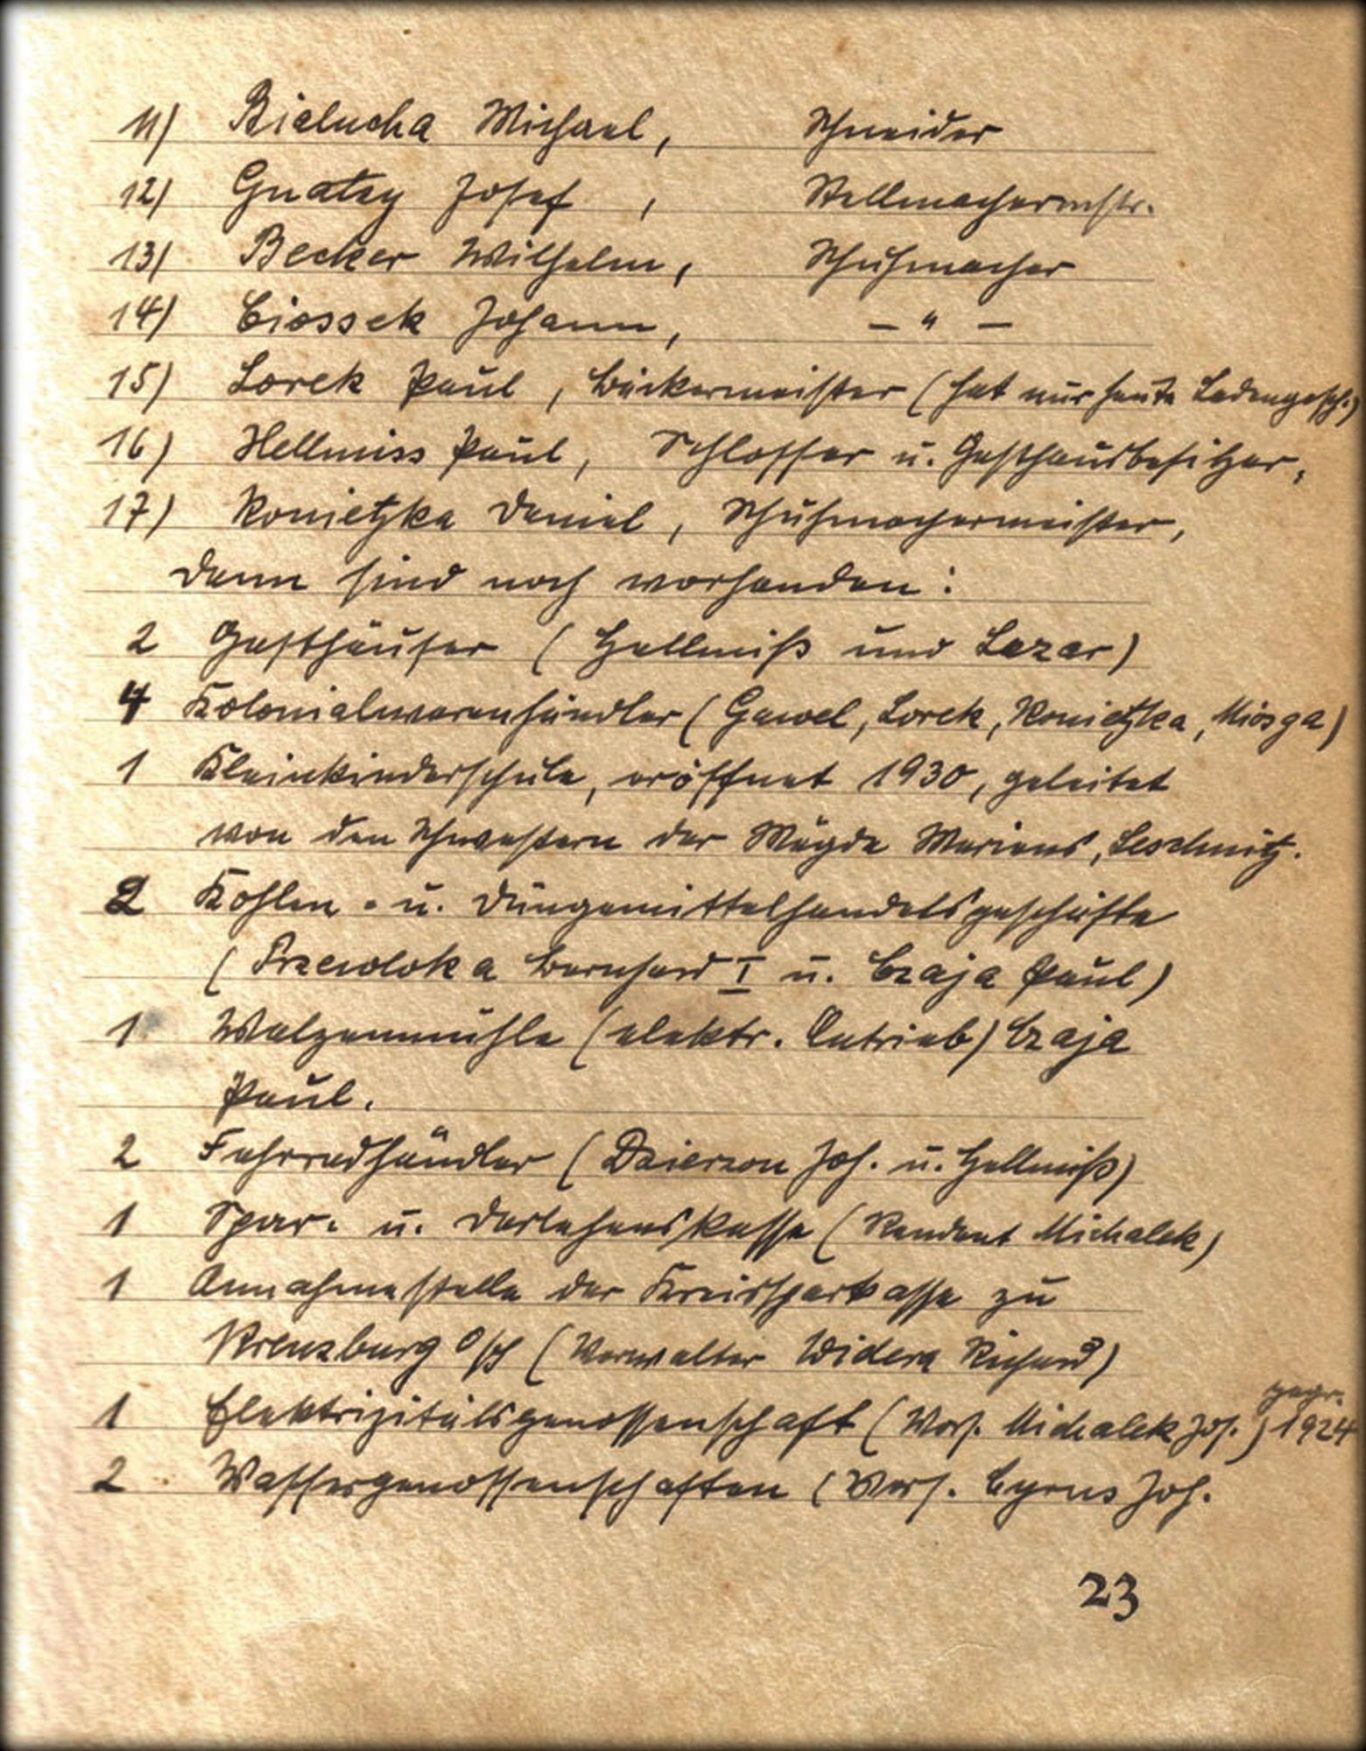 11) Bielucha Michael, Schneider
12) Gnatzy Josef, Stellmachermstr.
13) Becker Wilhelm, Schuhmacher
14) Ciossek Johann, – " –
15) Lorek Paul, Bäckermeister (hat nur heute Ladengesch.)
16) Hellmiss Paul, Schlosser u. Gasthausbesitzer,
17) Konietzka Daniel, Schuhmachermeister,
Dann sind noch vorhanden:
2 Gasthäuser (Hellmiß und Lazar)
4 Kolonialwarenhändler (Gawel, Lorek, Konietzka, Miosga)
1 Kleinkinderschule, eröffnet 1930, geleitet
von den Schwestern der Mägde Mariens, Leschnitz.
2 Kohlen- u. Düngemittelhandelsgeschäfte
(Przewloka Bernhard I u. Czaja Paul)
1 Walzenmühle (elektr. Antrieb) Czaja
Paul.
2 Fahrradhändler (Dzierzon Joh. u. Hellmiß)
1 Spar- u. Darlehenskasse (Rendant Michalek)
1 Annahmestelle der Kreissparkasse zu
Kreuzburg O/S (Verwalter Widera Richard)
1 Elektrizitätsgenossenschaft (Vors. Michalek Jos.) gegr. 1924
2 Wassergenossenschaften (Vors. Cyrus Joh.
23